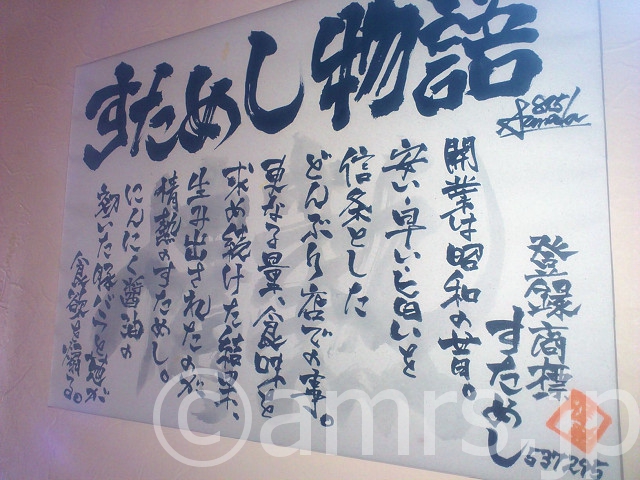 すためし物語
登録商標
すためし
537295
開業は昭和の昔。
安い・早い・旨いを
信条とした
どんぶり店での事。
更なる量、食味を
求め続けた結果、
生み出されたのが
情熱のすためし。
にんにく醤油の
効いた豚バラと葱が
食欲を満る。
©amrs.jp